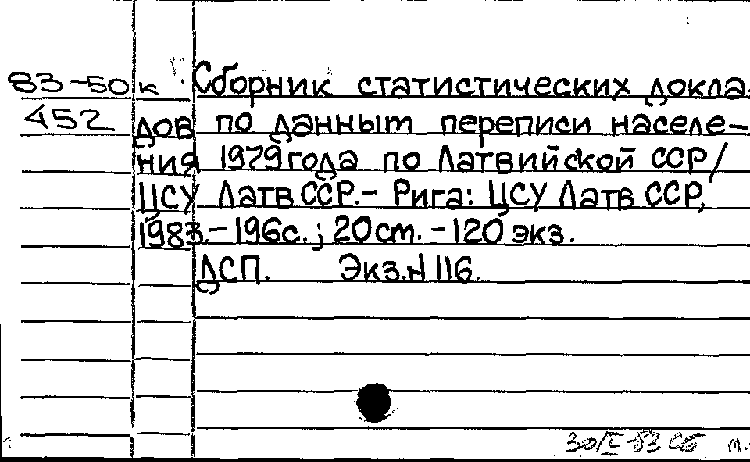 83-50к Сборник статистических докла
452 дов по данным переписи населе-
ния 1979 года по Латвийской ССР/
ЦСУ Латв ССР.- Рига: ЦСУ Латв ССР,
1983.-196с.; 20 ст. -120 экз.
ДСП. Экз.N 116.
30/I-83